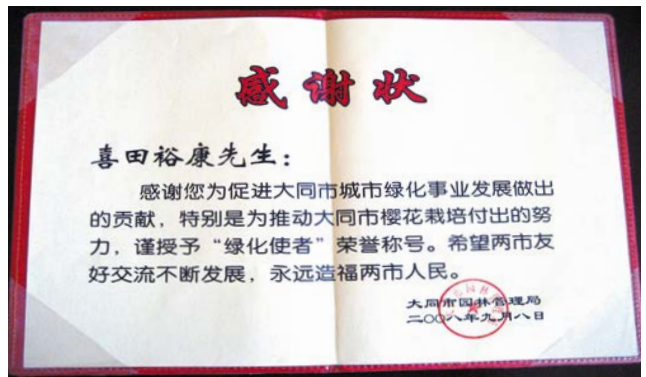 感谢状
喜田裕康先生：
感谢您为促进大同市城市绿化事业发展做出
的贡献，特别是为推动大同市樱花栽培付出的努
力，谨授予“绿化使者”荣誉称号。希望两市友
好交流不断发展，永远造福两市人民。
大同市园林管理局
二〇〇八年九月八日